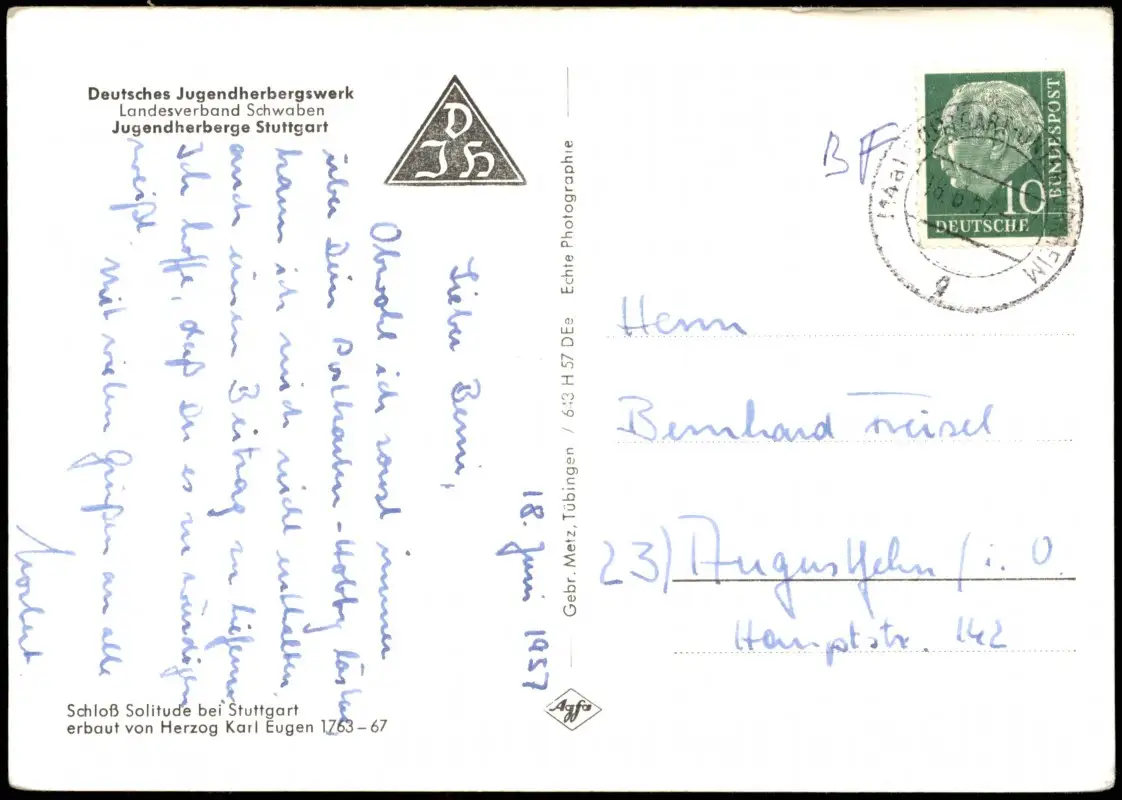 Deutsches Jugendherbergswerk
Landesverband Schwaben
Jugendherberge Stuttgart
D
J H
18. Juni 1957
Lieber Benni,
Obwohl ich sonst immer
über Dein Postkarten-Hobby lästere,
kann ich mich nicht enthalten,
auch einen Beitrag zu liefern.
Ich hoffe, daß Du es zu würdigen
weißt.
Mit vielen Grüßen an alle
Norbert
Schloß Solitude bei Stuttgart
erbaut von Herzog Karl Eugen 1763–67
Gebr. Metz, Tübingen / 643 H 57 DEe Echte Photographie
Agfa
BF
10
DEUTSCHE
BUNDESPOST
(14a)
g
Herrn
Bernhard
23) Augustfehn / i. O.
Hauptstr. 142